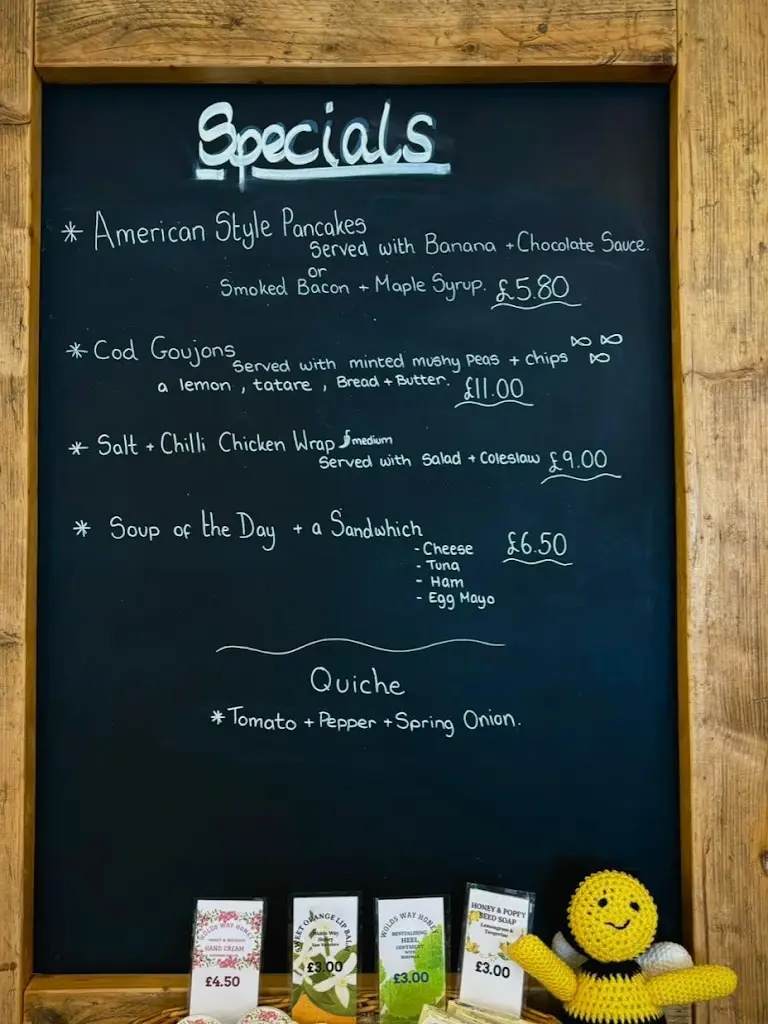 Specials
* American Style Pancakes
Served with Banana + Chocolate Sauce.
or
Smoked Bacon + Maple Syrup. £5.80
* Cod Goujons
Served with minted mushy peas + chips
a lemon, tatare, Bread + Butter. £11.00
* Salt + Chilli Chicken Wrap medium
Served with Salad + Coleslaw £9.00
* Soup of the Day + a Sandwhich £6.50
- Cheese
- Tuna
- Ham
- Egg Mayo
Quiche
* Tomato + Pepper + Spring Onion.
WOLDS WAY HONEY
HAND CREAM
£4.50
SWEET ORANGE LIP BALM
Wolds Way
Honey
£3.00
WOLDS WAY HONEY
REVITALIZING
HEEL
£3.00
HONEY & POPPY
SEED SOAP
Lemongrass &
£3.00